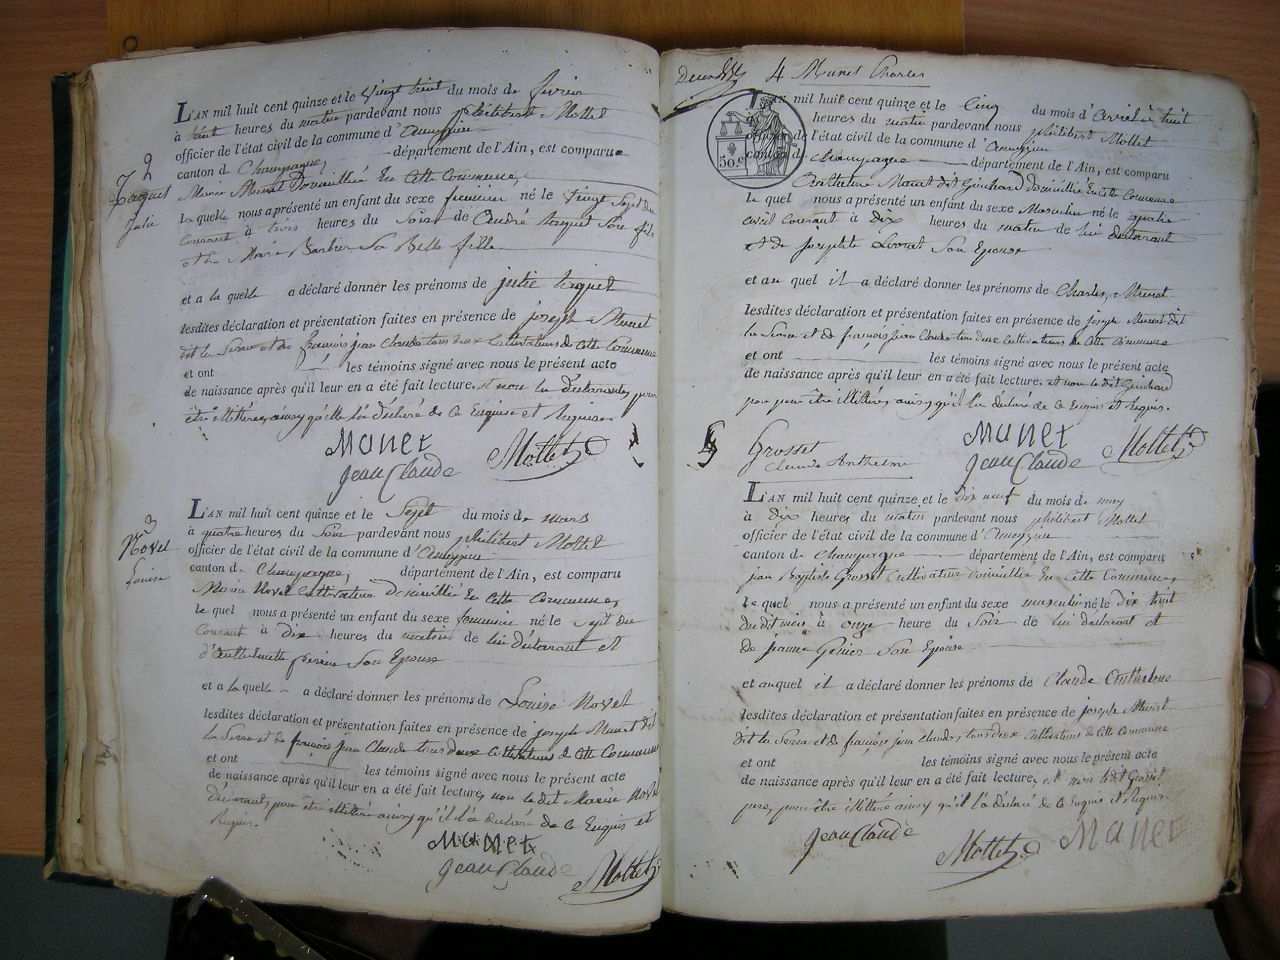 2
Julie
L'AN mil huit cent quinze et le vingt huit du mois de fevrier
à huit heures du matin pardevant nous philibert Mollet
officier de l'état civil de la commune d'
canton de Champagne, département de l'Ain, est comparue
Marie Munet Domiciliée En Cette Commune,
la quelle nous a présenté un enfant du sexe feminin né le vingt Sept Du
Courant à trois heures du Soir de André Son fils
et de Marie Barbier Sa Belle fille
et a la quelle a déclaré donner les prénoms de julie
lesdites déclaration et présentation faites en présence de joseph Munet
dit la Serra et de françois jean Claude tous deux Cultivateurs de Cette Commune
et ont les témoins signé avec nous le présent acte
de naissance après qu'il leur en a été fait lecture, et non la Déclarante, pour
être illitérée, ainsy qu'elle l'a déclaré de Ce Enquise et Requise.
Munet
Jean Claude Mollet
3
Novel
Louise
L'AN mil huit cent quinze et le Sept du mois de mars
à quatre heures du Soir pardevant nous philibert Mollet
officier de l'état civil de la commune d'
canton de Champagne, département de l'Ain, est comparu
Novel Cultivateur Domicilié En Cette Commune,
le quel nous a présenté un enfant du sexe feminin né le Sept du
Courant à Dix heures du matin de lui déclarant et
Son Epouse
et a la quelle a déclaré donner les prénoms de Louise Novel
lesdites déclaration et présentation faites en présence de joseph Munet dit
la Serra et de françois jean Claude tous deux Cultivateurs de Cette Commune
et ont les témoins signé avec nous le présent acte
de naissance après qu'il leur en a été fait lecture, non le dit Novel
Déclarant, pour être illitéré ainsy qu'il l'a déclaré de Ce Enquis et
Requis.
Munet
Jean Claude Mollet
4 Munet Charles
50 c
L'AN mil huit cent quinze et le Cinq du mois d'avril à huit
heures du matin pardevant nous philibert Mollet
officier de l'état civil de la commune d'
canton de Champagne département de l'Ain, est comparu
Anthelme Munet dit Domicilié En Cette Commune
le quel nous a présenté un enfant du sexe Masculin né le quatre
avril Courant à Dix heures du matin de lui déclarant
et de Josephte Son Epouse
et au quel il a déclaré donner les prénoms de Charles, Munet
lesdites déclaration et présentation faites en présence de joseph Munet dit
la Serra et de françois jean Claude tous deux Cultivateurs de Cette Commune
et ont les témoins signé avec nous le présent acte
de naissance après qu'il leur en a été fait lecture, et non le dit
pere pour être illitéré, ainsy qu'il l'a déclaré de Ce Enquis et Requis.
Munet
Jean Claude Mollet
Grosset
Claude Anthelme
L'AN mil huit cent quinze et le dix neuf du mois de may
à Dix heures du matin pardevant nous philibert Mollet
officier de l'état civil de la commune d'
canton de Champagne département de l'Ain, est comparu
jean Baptiste Grosset Cultivateur domicilié En Cette Commune,
le quel nous a présenté un enfant du sexe masculin né le dix huit
du dit mois à onze heure du Soir de lui declarant et
de jeanne Son Epouse
et auquel il a déclaré donner les prénoms de Claude Anthelme
lesdites déclaration et présentation faites en présence de joseph Munet
dit la Serra et de françois jean Claude, tous deux Cultivateurs de Cette Commune
et ont les témoins signé avec nous le présent acte
de naissance après qu'il leur en a été fait lecture, et non ledit Grosset
pere, pour être illitéré ainsy qu'il l'a déclaré de Ce Enquis et Requis.
Jean Claude
Mollet Munet